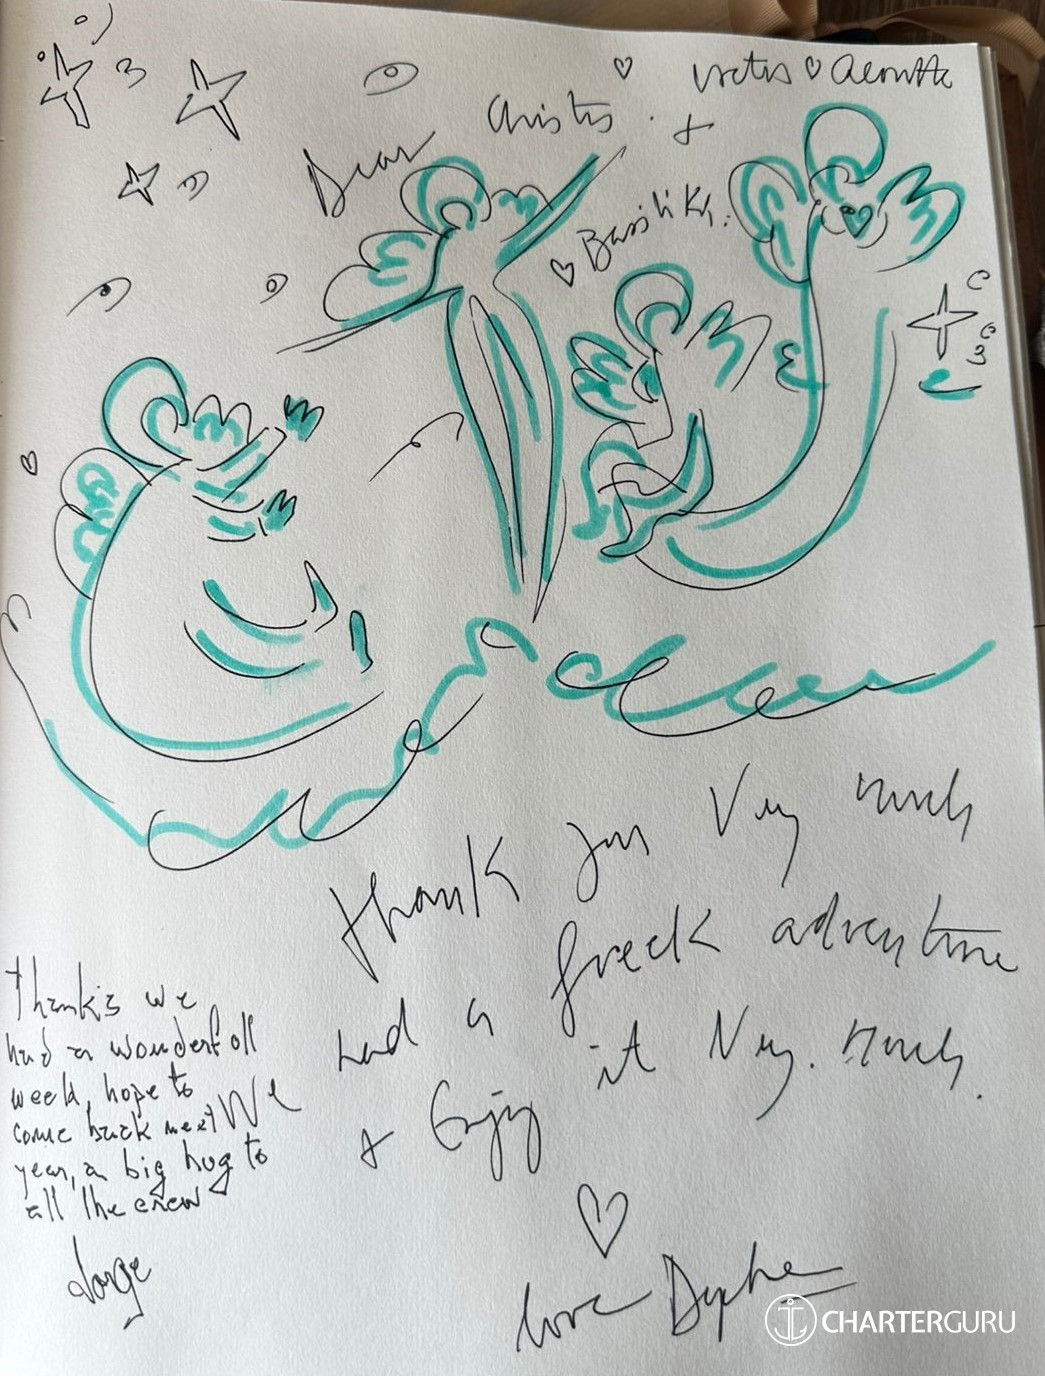 Dear Christos. +
♡ Basiliki.
Thank you Very much
We had a greek adventure
& Enjoy it Very. much.
♡
love Daphne
Thanks we
had a wonderfoll
week, hope to
come back next
year, a big hug to
all the crew
Jorge
CHARTERGURU